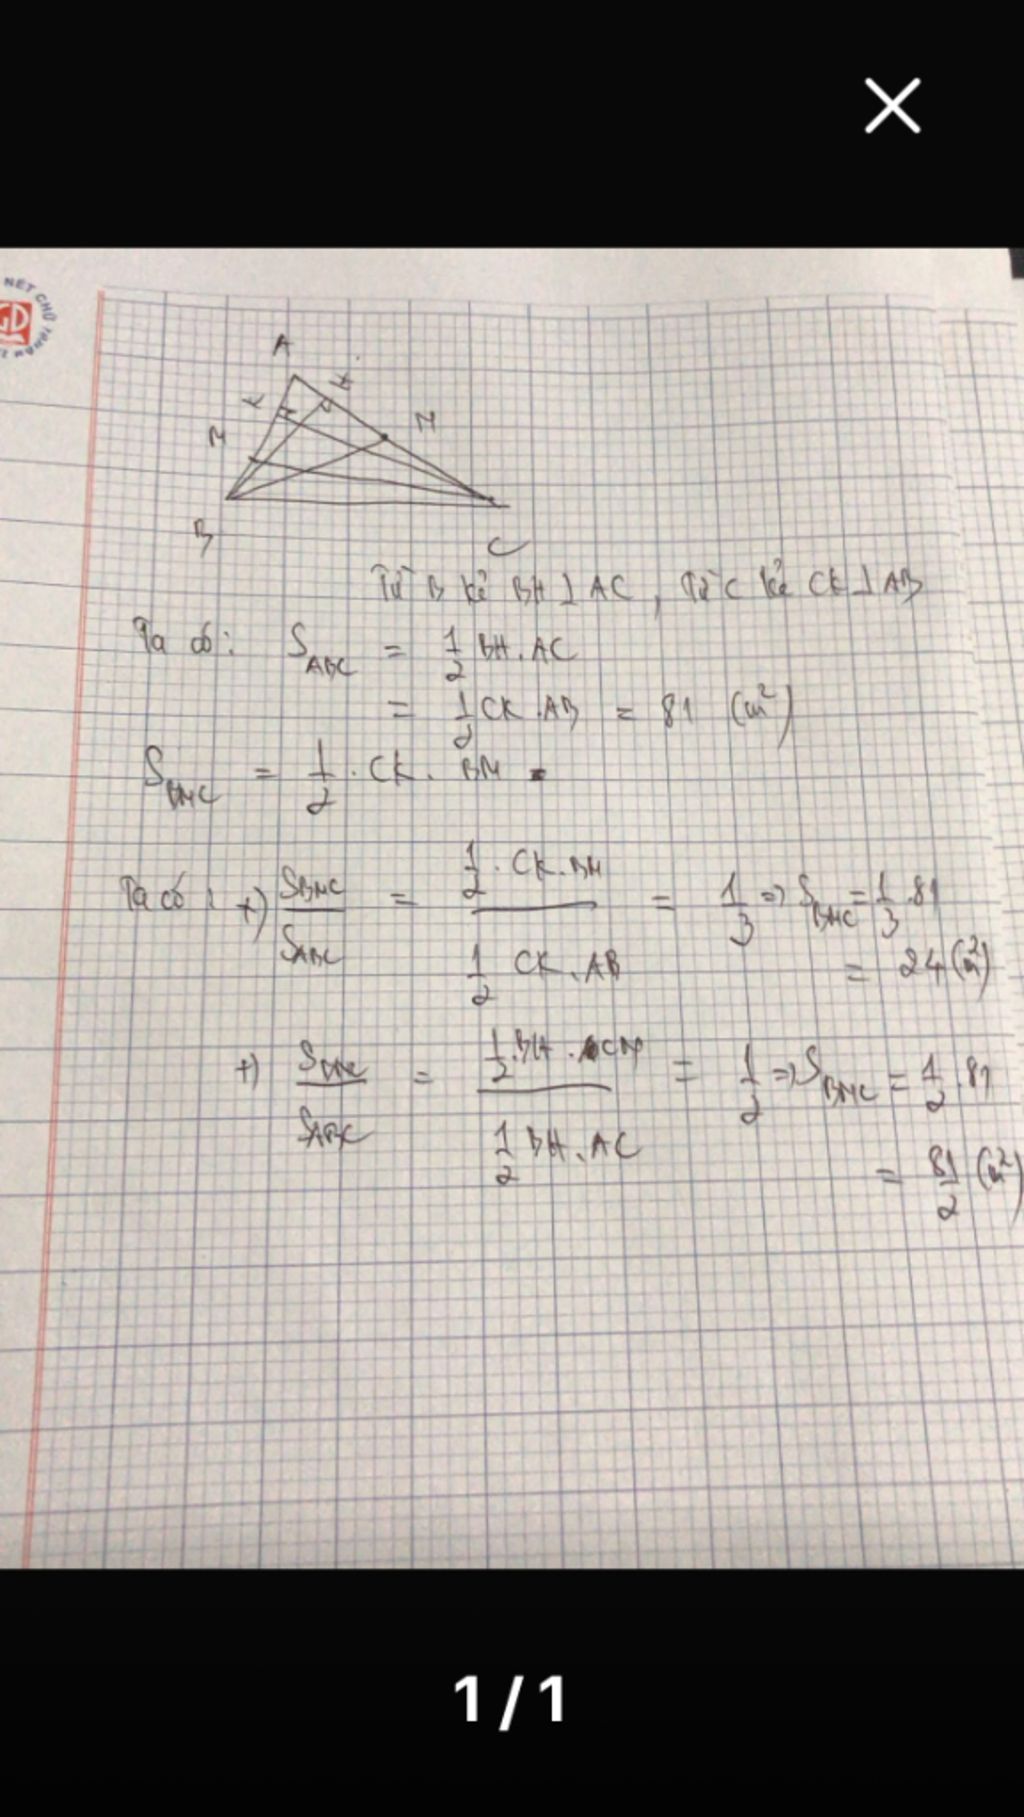 NÉT CHỮ
GD
A
K
H
M
N
B
C
Từ B kẻ BH ⊥ AC, từ C kẻ CK ⊥ AB
Ta có: S_ABC = 1/2 BH.AC
= 1/2 CK.AB = 81 (cm²)
S_BMC = 1/2 . CK. BM
Ta có: +) S_BMC / S_ABC = (1/2 . CK.BM) / (1/2 CK.AB) = 1/3 => S_BMC = 1/3 .81
= 24 (cm²)
+) S_BNC / S_ABC = (1/2.BH.CN) / (1/2 BH.AC) = 1/2 => S_BNC = 1/2 .81
= 81/2 (cm²)
1/1